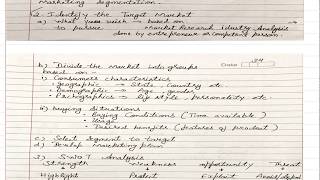 marketing segmentation.
2. Identify the Target Market
a) what your wish - based on -
to pursue Market Research, Industry Analysis
done by entrepreneur or competent person.
Date: 24
b) Divide the market into groups
based on -
1) Consumers characteristics
- geographic → State, country etc
- Demographic → Age, gender
- Psychographics → life style, personality etc
2) Buying Situations
- Buying Conditions (Time available)
- Usage
- Desired benefits (features of product)
c) Select Segment to target
d) Develop Marketing plan
3) S-W-O-T Analysis
Strength Weakness opportunity Threat
Highlight Protect Exploit Avoid/defend